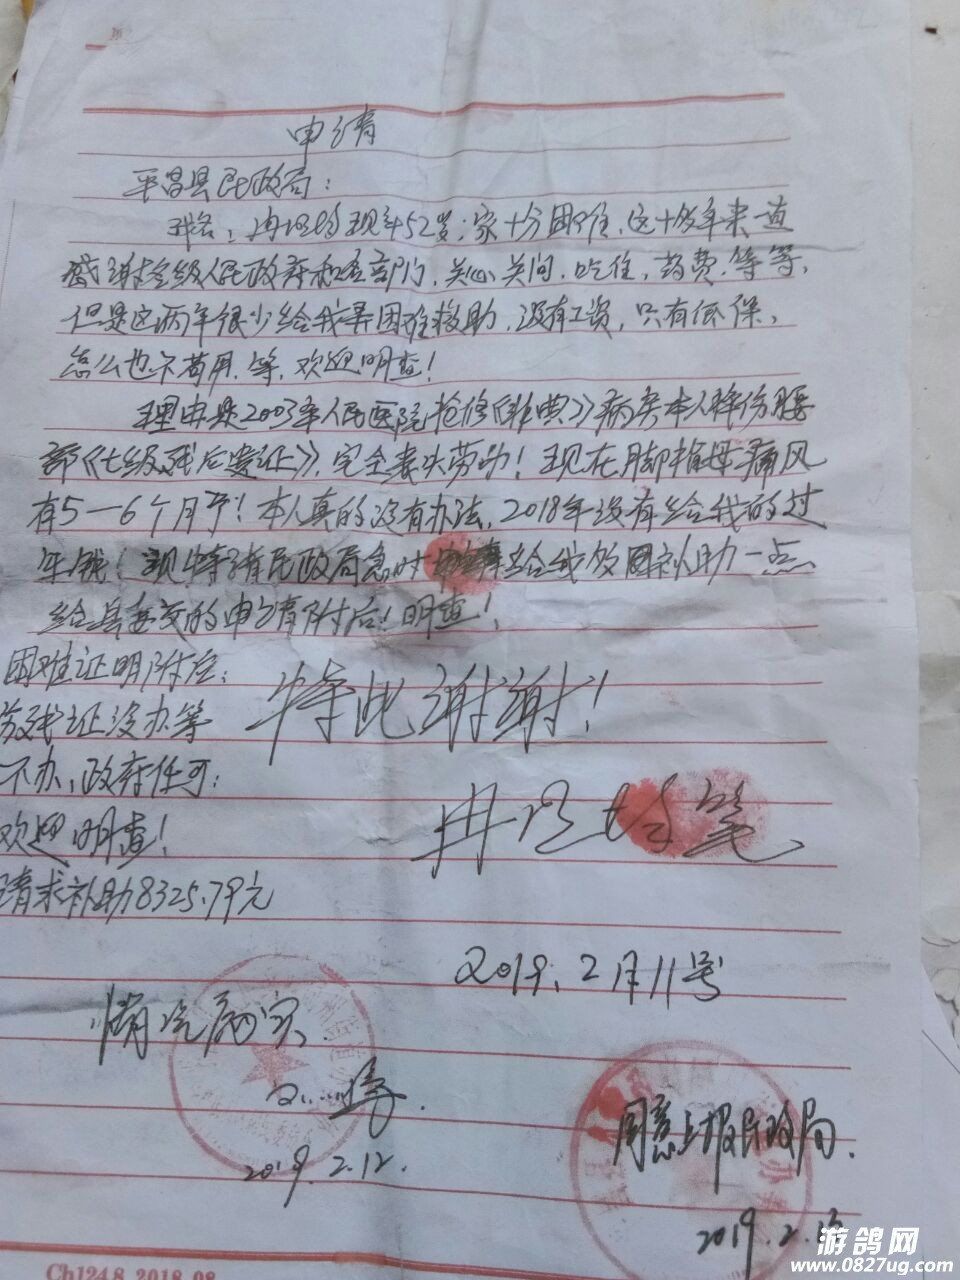 申请
平昌县民政局：
我名：冉 现年52岁，家十分困难，这十几年来一直
感谢各级人民政府和各部门，关心关问，吃住，药费，等等，
但是这两年很少给我弄困难救助，没有工资，只有低保，
怎么也不够用，等，欢迎明查！
理由是2003年人民医院抢修《非典》病房本人摔伤腰
部《七级残后遗证》，完全丧失劳动！现在脚拇母痛风
有5—6个月了！本人真的没有办法，2018年没有给我的过
年钱！现特请民政局急时 给我 困补助一点
给县委交的申请附后！明查！
困难证明附后；
残证没办等
不办，政府任可；
欢迎明查！
请求补助8325.79元
特此谢谢！
冉 笔
2019.2月11号
情况属实
2019.2.12.
同意上报民政局.
2019.2.
Ch124.8 2018.08
游鸽网
www.0827ug.com